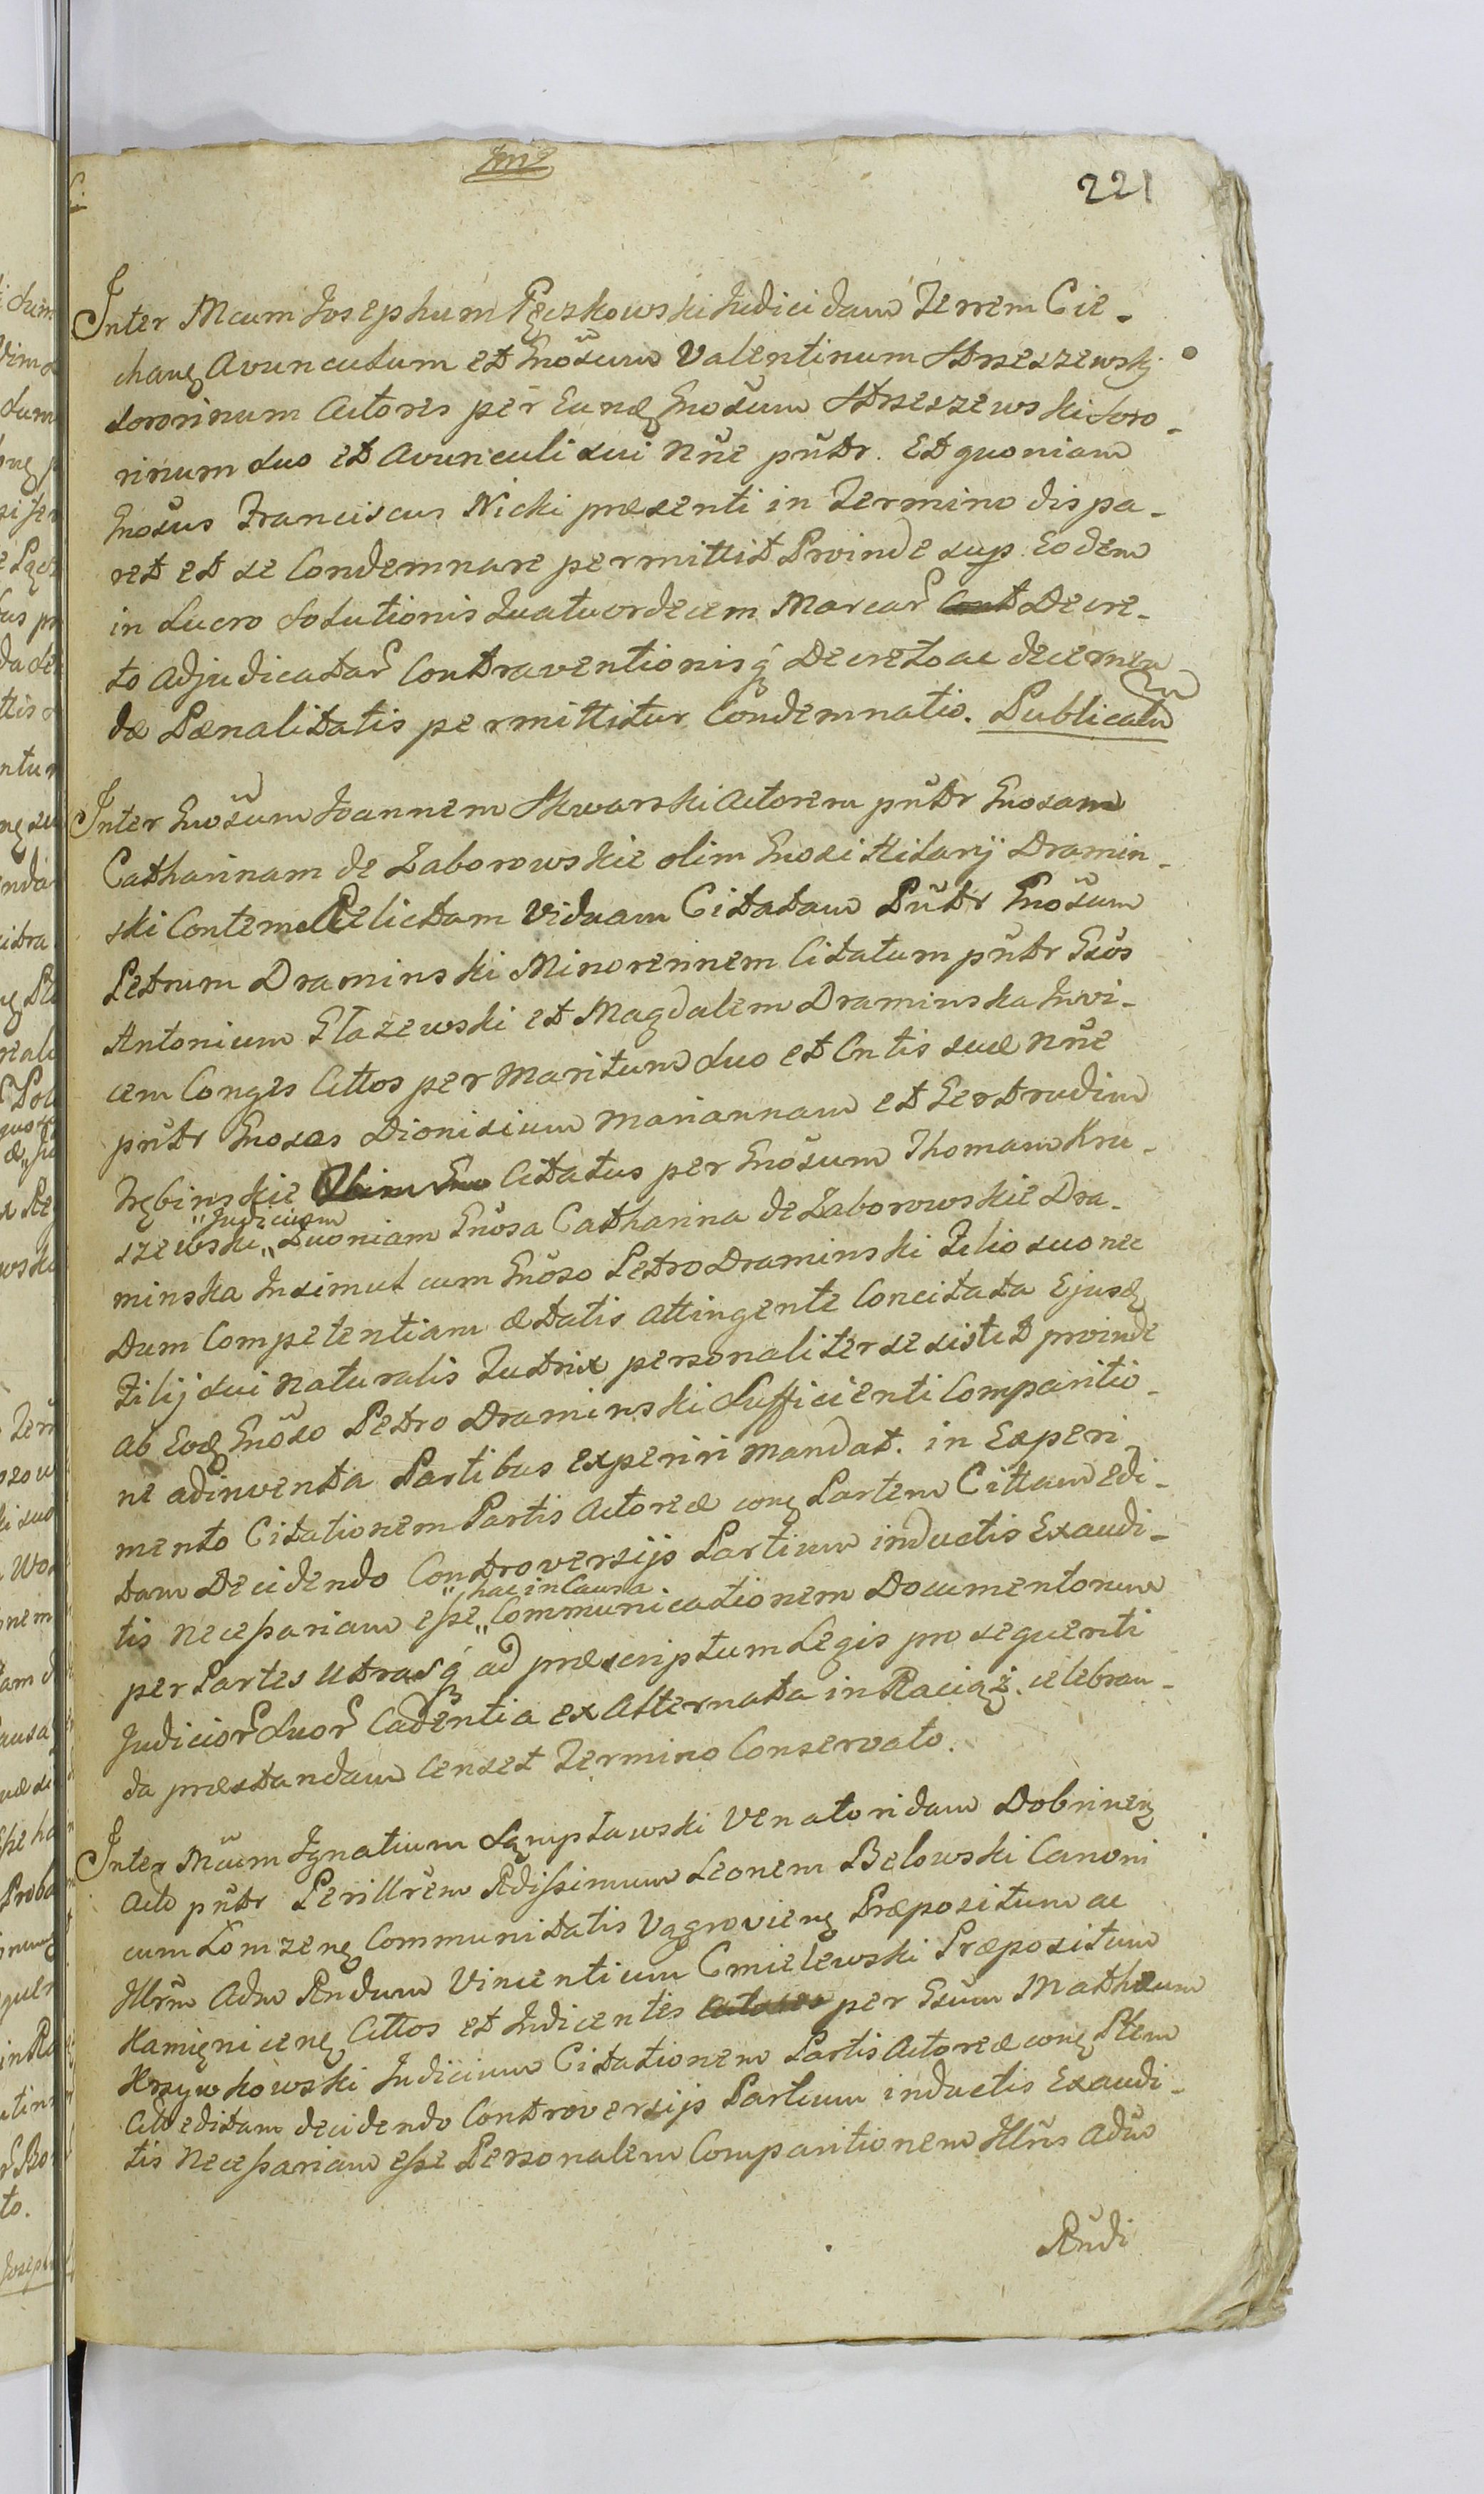 221
Inter Mcum Josephum Pęczkowski Judicidam Terrem Cie-
chanę Avunculum et Gnosum Valentinum Strzeszewskj
Sororinum Actores per Eunđ Gnosum Strzeszewski Soro-
rinum suo et Avunculi sui Nne pntr. Et quoniam
Gnosus Franciscus Nicki presenti in Termino dispa-
ret et se Condemnare permittit Proinde sup Eodem
in Lucro Solutionis Quatuordecem Marcar Decre-
to adjudicatar Contraventionisq Decreto ac decernen-
dæ Pænalitatis permittitur Condemnatio. Publicatũ
Inter Gnosum Joannem Skwarski Actorem pntr Gnosam
Catharinam de Zaborowskie olim Gnosi Hilarij Dramin-
ski Contem Relictam Viduam Citatam Pntr Gnosum
Petrum Draminski Minorennem Citatum pntr Gsos
Antonium Głazewski et Magdalem Draminska Invi-
cem Conges Cittos per Maritum suo et Cntis suæ Nne
pntr Gnosos Dionisium Mariannam et Gertrudim
Trębinskie Citatus per Gnosum Thomam Kru-
"Judicium
szewski „ Quoniam Gnosa Catharina de Zaborowskie Dra-
minska Insimul cum Gnoso Petro Draminski Filio suo nec
Dum Competentiam ætatis attingente Concitata Ejusđ
Filij sui Naturalis Tutrix personaliter se sistet proinde
ab Eođ Gnoso Petro Draminski Sufficienti Comparitio-
ne adinventa Partibus experiri mandat. in Experi
mento Citationem Partis Actoreæ conę Partem Cittam edi-
tam Decidendo Controversijs Partium inductis Exaudi-
"hac in Causa
tis Necessariam esse „ Communicationem Documentorum
per Partes Utrasq ad præscriptum Legis pro sequenti
Judicior Suor Cadentia ex Alternata in Raciąż. celebran-
da præstandam Censet Termino Conservato.
Inter Mcum Ignatium Sęmpławski Venatoridam Dobrinenę
Acto pntr Perillrem Rdissimum Leonem Belowski Canoni
cum Łomzenę Communitatis Vągrovienę Præpositum ac
Illrm Adm Rndum Vincentium Cmielewski Præpositum
Kamięnicenę Cittos et Indicentes per Gsum Mathæum
Krzywkowski Judicium Citationem Partis Actoreæ conę Ptem
Citt editam decidendo Controversijs Partium inductis Exaudi-
tis Necessariam esse Personalem Comparitionem Illris Adm
Rndi